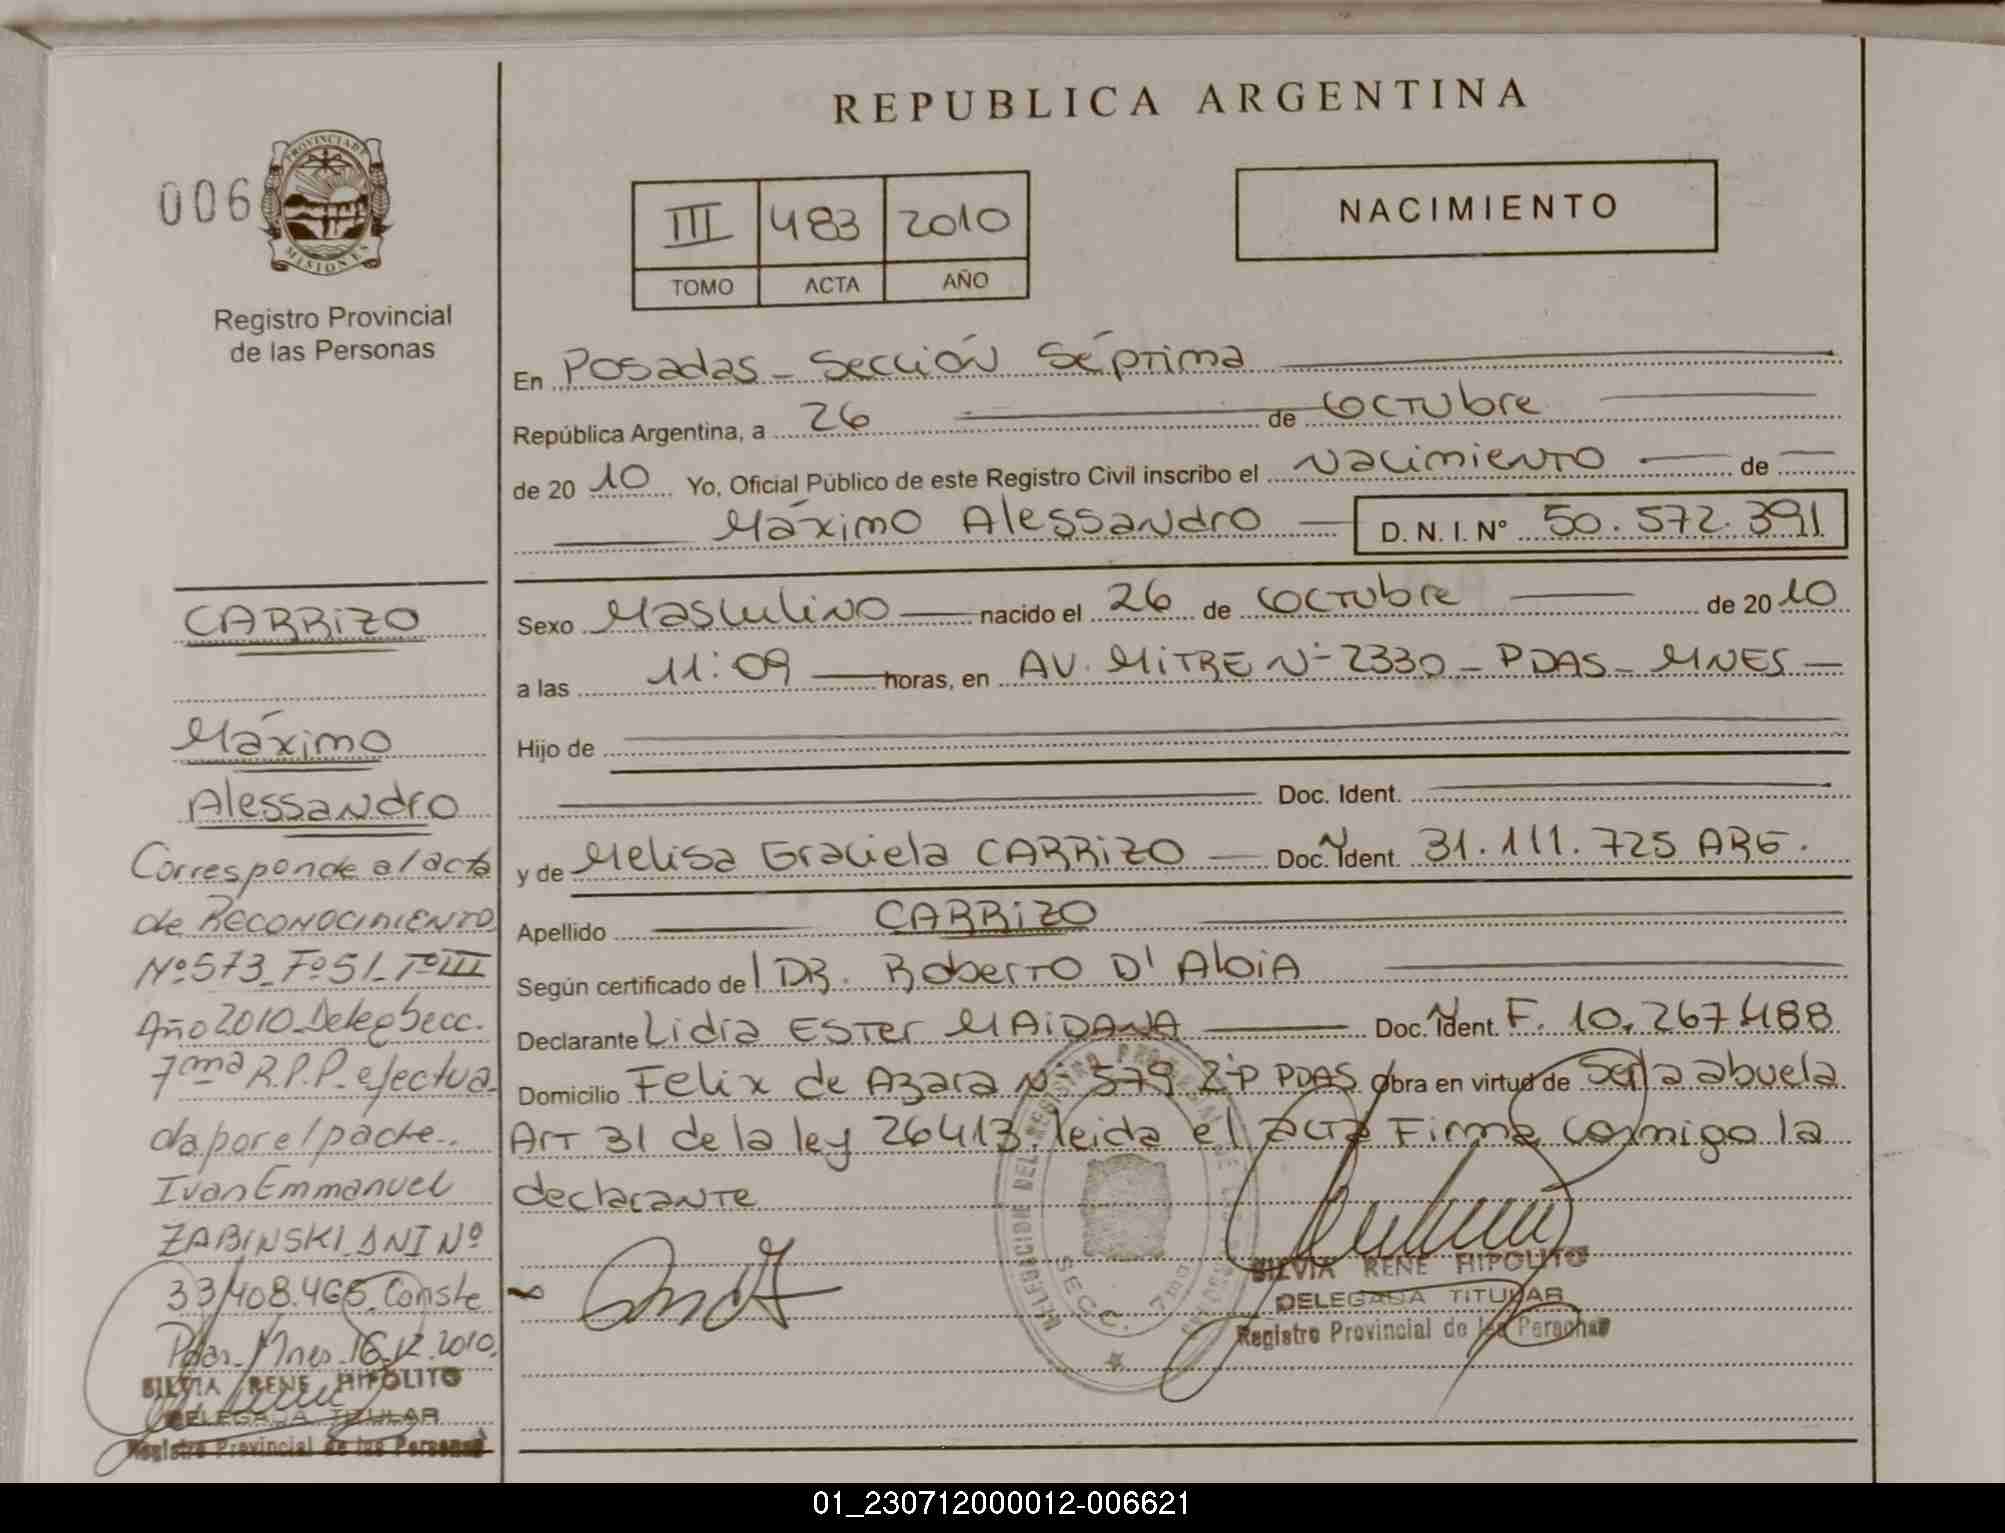 REPUBLICA ARGENTINA
006
PROVINCIA DE MISIONES
Registro Provincial
de las Personas
III 483 2010
TOMO ACTA AÑO
NACIMIENTO
En Posadas - Sección Séptima
República Argentina, a 26 de Octubre
de 2010 Yo, Oficial Público de este Registro Civil inscribo el Nacimiento de
Máximo Alessandro D. N. I. N° 50.572.391
Sexo Masculino nacido el 26 de Octubre de 2010
a las 11:09 horas, en AV. MITRE Nº 2330 - PDAS - MNES -
Hijo de
Doc. Ident.
y de Melisa Graciela CARRIZO Doc. Ident. N 31.111.725 ARG.
Apellido CARRIZO
Según certificado del DR. Roberto D' AloiA
Declarante Lidia Ester MAIDANA Doc. Ident. N F. 10.267.488
Domicilio Felix de Azara Nº 579 2ºP PDAS Obra en virtud de Ser la abuela
Art 31 de la ley 26413. leida el acta Firma conmigo la
declarante
CARRIZO
Máximo
Alessandro
Corresponde al acta
de RECONOCIMIENTO
Nº 573 Fº 51 Tº III
Año 2010 Deleg Secc.
7ma R.P.P. efectua
da por el padre..
Ivan Emmanuel
ZABINSKI DNI Nº
33.408.465. Conste
Pdas. Mnes. 16.12.2010.
SILVIA RENE HIPOLITO
DELEGADA TITULAR
Registro Provincial de las Personas
DELEGACION DEL REGISTRO PROVINCIAL DE LAS PERSONAS
SECC. 7ma
SILVIA RENE HIPOLITO
DELEGADA TITULAR
Registro Provincial de las Personas
01_230712000012-006621